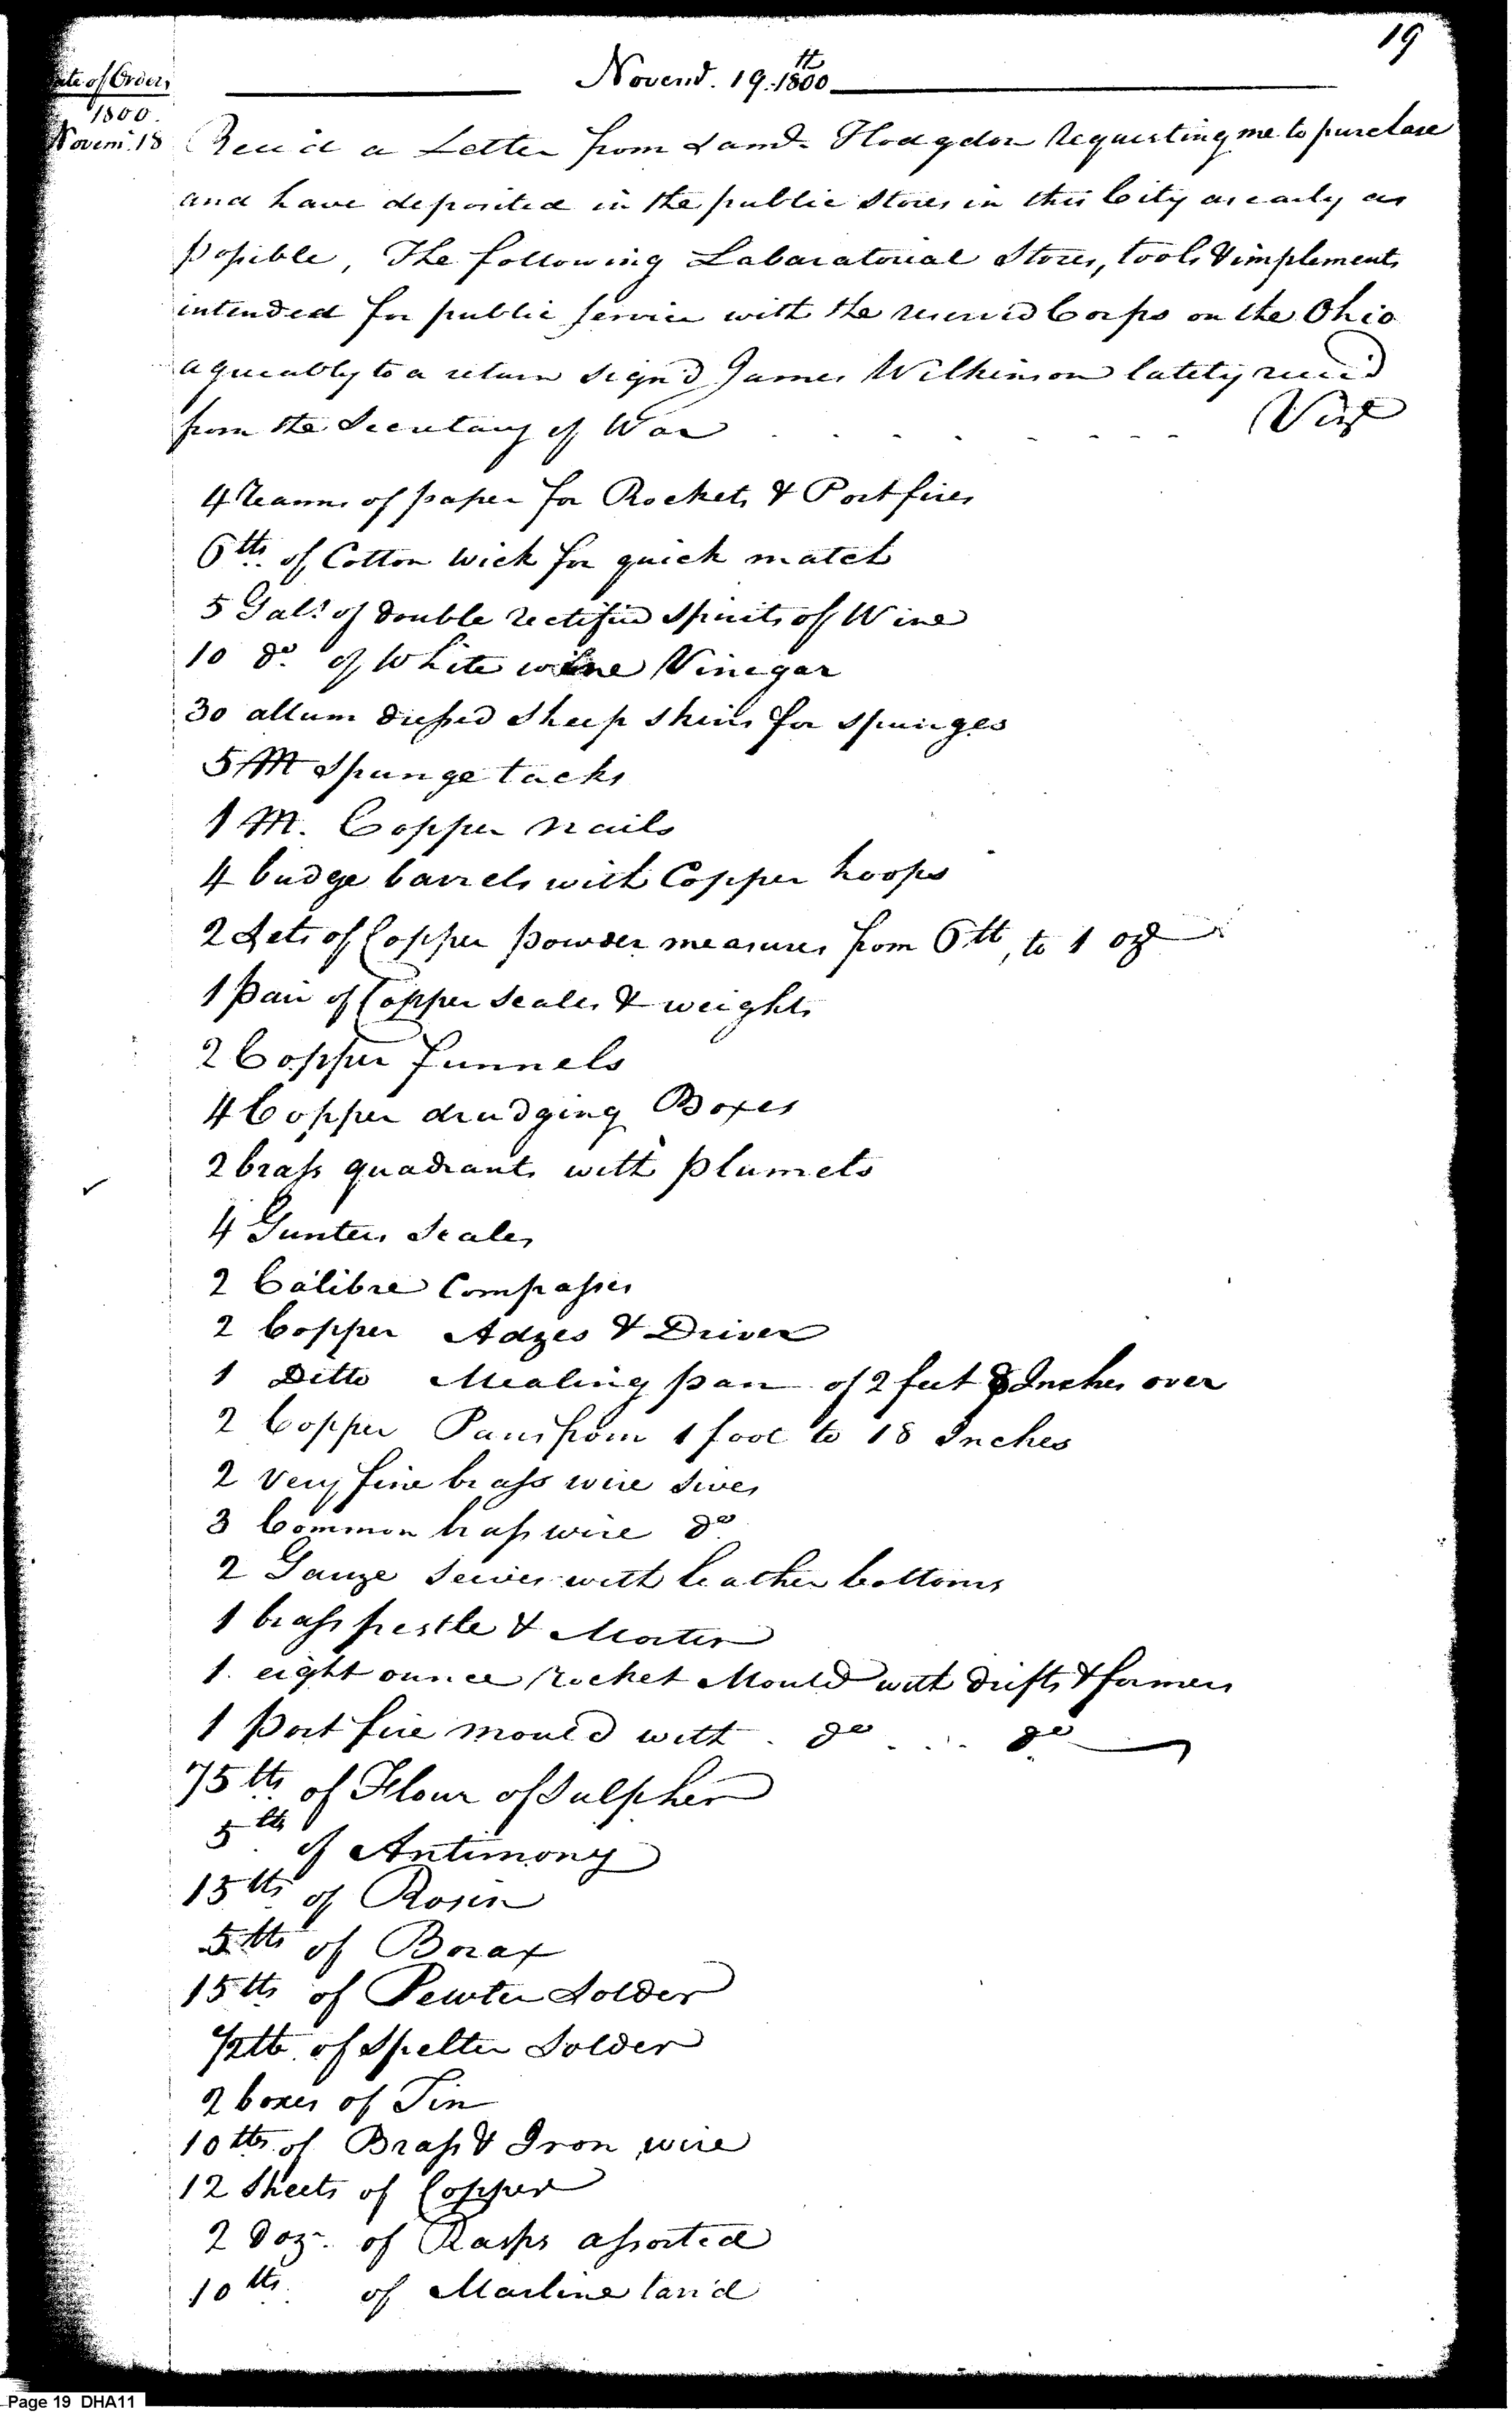 19
Date of Orders
Novemr. 19th. 1800
1800.
Novemr. 18
Rec'd a Letter from Saml. Hodgdon Requesting me to purchase
and have deposited in the public Stores in this City as early as
possible, The following Labaratorial Stores, tools & implements
intended for public service with the reserved Corps on the Ohio
agreeably to a return sign'd James Wilkinson lately rec'd
from the Secretary of War . . . . . . . . Vizt
4 Reams of paper for Rockets & Portfires
6 lbs. of Cotton Wick for quick match
5 Gals. of double rectified spirits of Wine
10 do. of White wine Vinegar
30 allum dressed sheep skins for spunges
5 M Spunge tacks
1 M. Copper nails
4 budge barrels with Copper hoops
2 Sets of Copper powder measures from 6 lb, to 1 oz
1 pair of Copper Scales & weights
2 Copper funnels
4 Copper drudging Boxes
2 brass quadrants with plumets
4 Gunters Scales
2 Calibre Compasses
2 Copper Adzes & Driver
1 Ditto Mealing pan of 2 feet 8 Inches over
2 Copper Pans from 1 foot to 18 Inches
2 Very fine brass wire sives
3 Common brass wire do.
2 Gauze seives with leather bottoms
1 brass pestle & Morter
1. eight ounce rocket Mould with drifts & formers
1 Port fire mould with . do . . . do
75 lbs. of Flour of Sulpher
5 lbs. of Antimony
15 lbs. of Rosin
5 lbs of Borax
15 lbs. of Pewter Solder
1/2 lb. of Spelter Solder
2 boxes of Tin
10 lbs. of Brass & Iron wire
12 Sheets of Copper
2 Doz. of Rasps assorted
10 lbs. of Marline tar'd
Page 19 DHA11